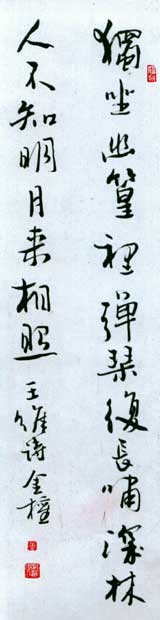 獨坐幽篁裡彈琴復長嘯深林
人不知明月来相照
王維詩金檀